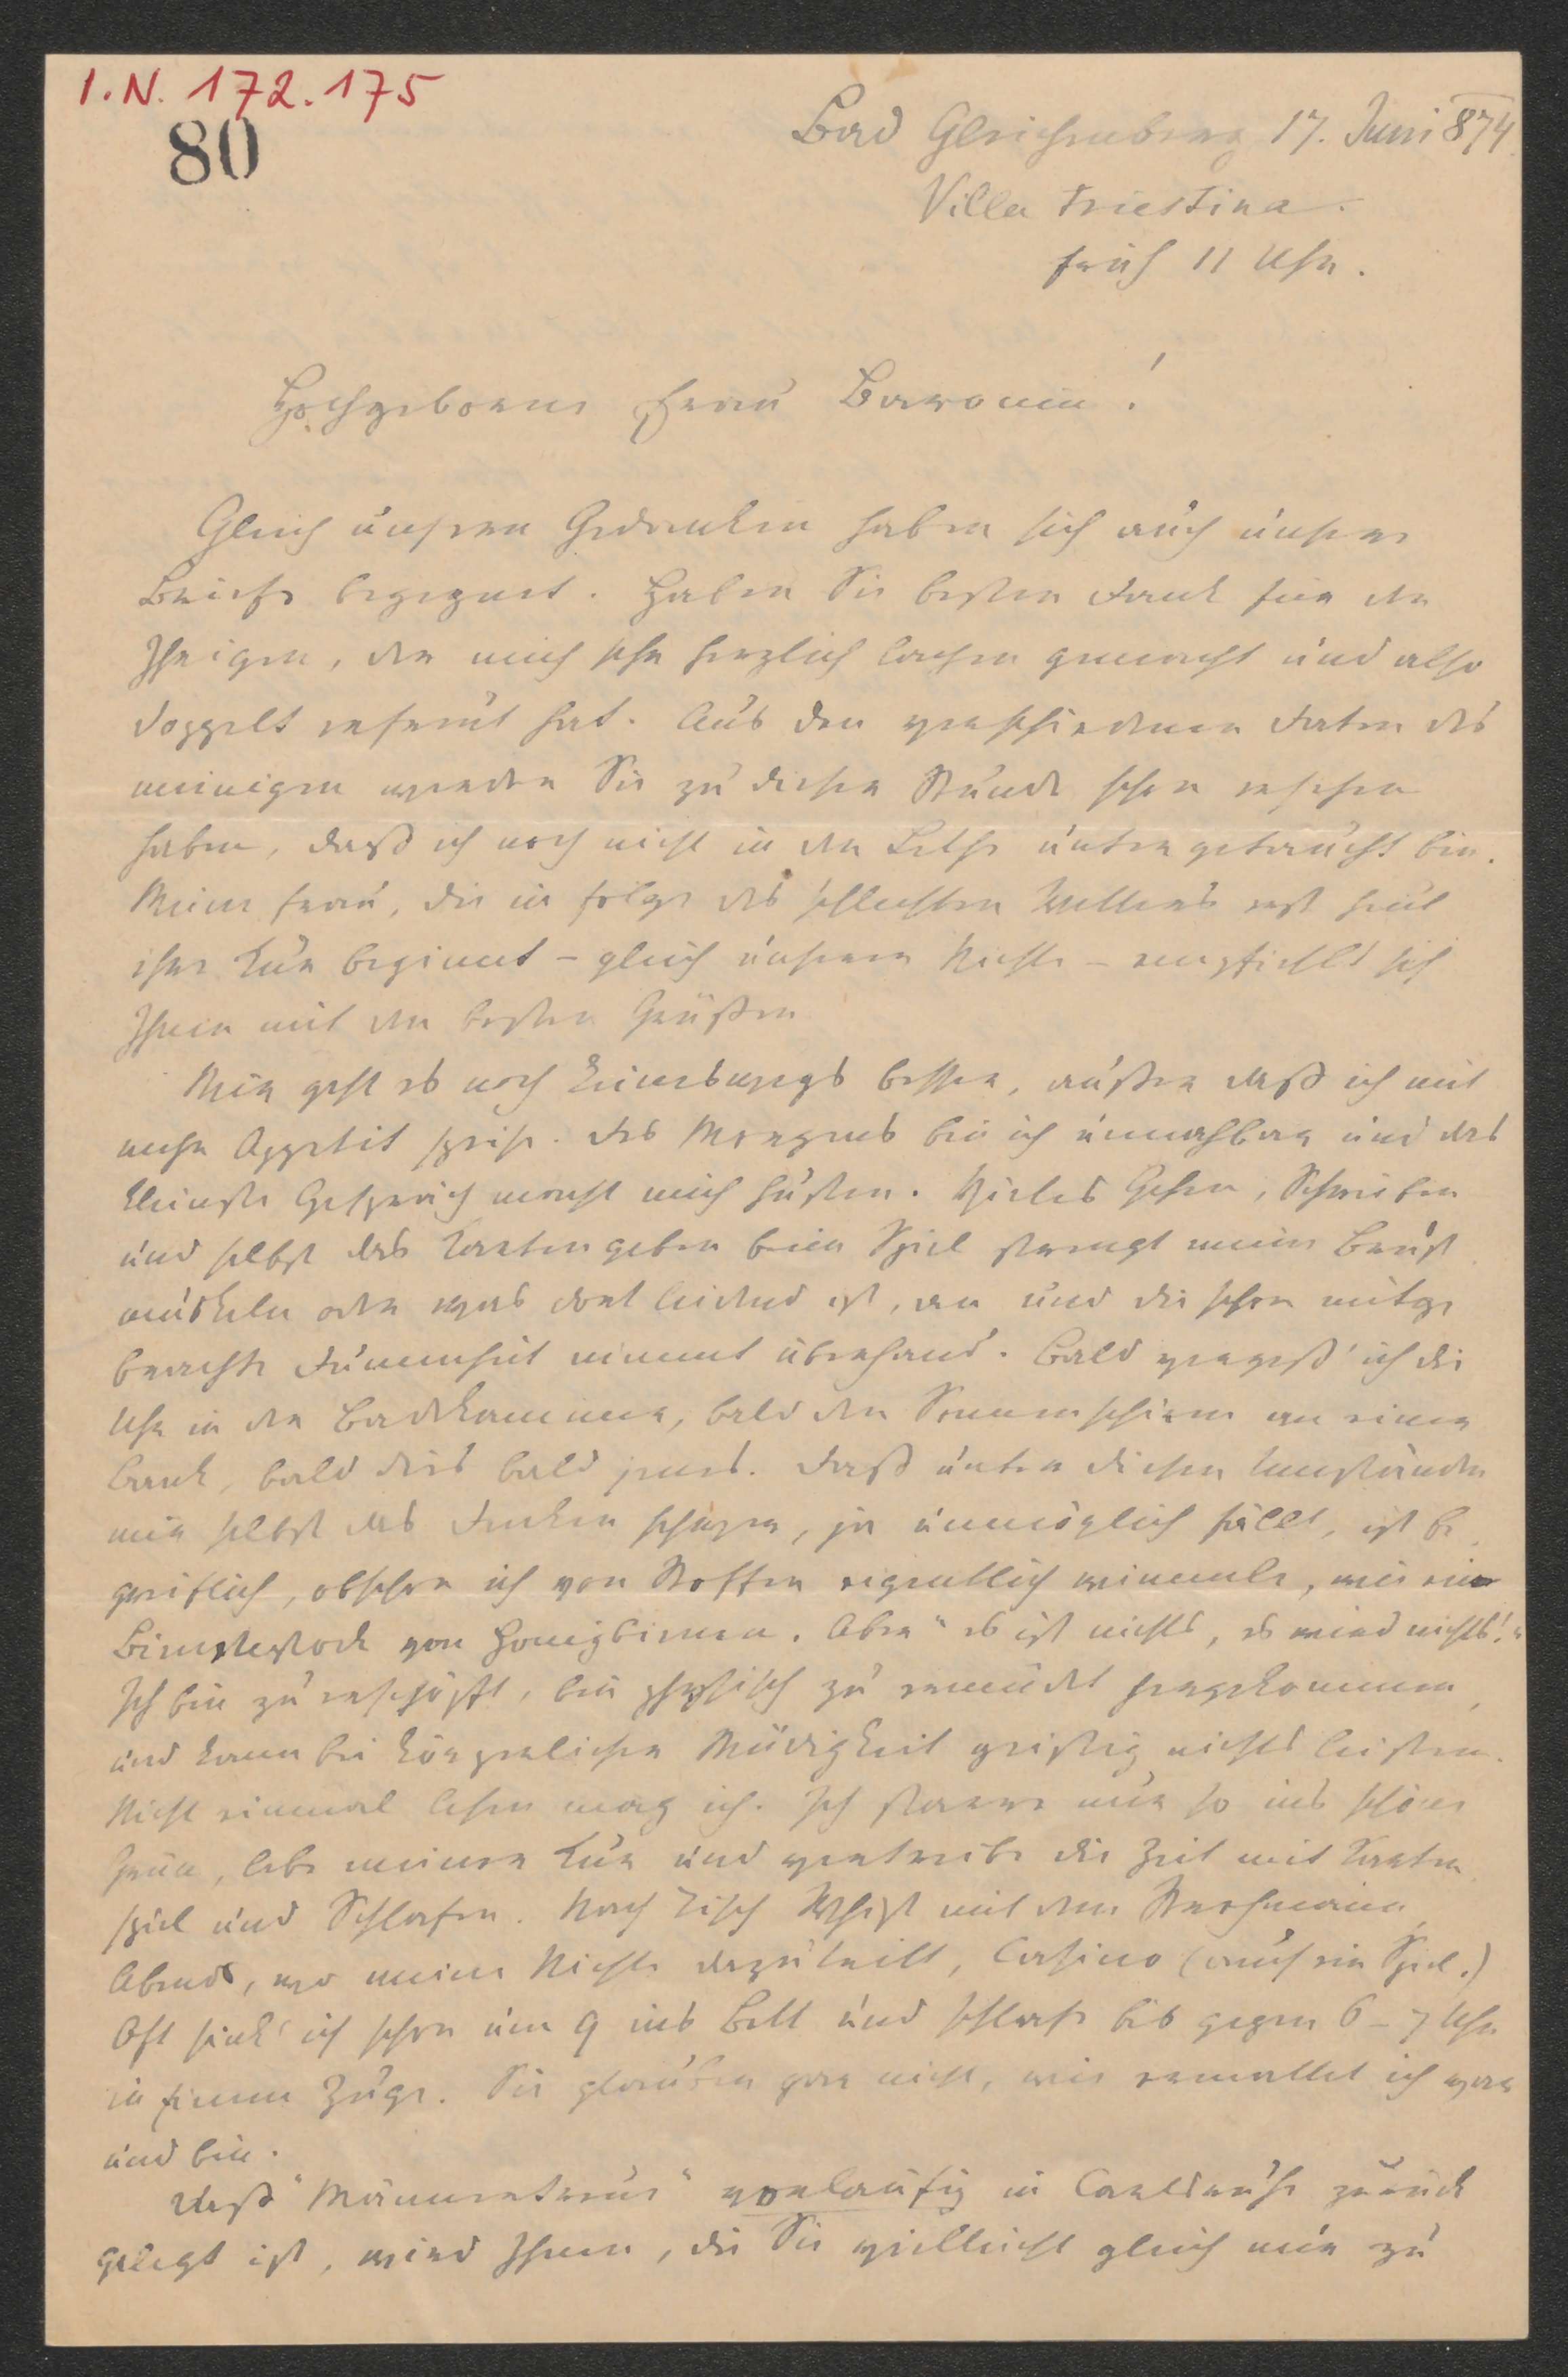 I.N. 172.175
80
Bad Gleichenberg 17. Juni 874
Villa Triestina.
früh 11 Uhr.
Hochgeborene Frau Baronin!
Gleich unseren Gedanken haben sich auch unsere
Briefe begegnet. Haben Sie besten Dank für den
Ihrigen, der mich sehr herzlich lachen gemacht und also
doppelt erfreut hat. Aus den verschiedenen Daten des
meinigen werden Sie zu dieser Stunde schon ersehen
haben, daß ich noch nicht in den Lethe untergetaucht bin.
Meine Frau, die in Folge des schlechten Wetters erst heut
ihre Kur beginnt – gleich unserer Nichte – empfiehlt sich
Ihnen mit den besten Grüßen
Mir geht es noch keineswegs besser, außer daß ich mit
mehr Appetit speise. Des Morgens bin ich unnahbar und das
kleinste Gespräch macht mich husten. Vieles Gehen, Schreiben
und selbst das Kartengeben beim Spiel strengt meine Brust
muskeln oder was dort leidend ist, an und die schon mitge
brachte Dummheit nimmt überhand. Bald vergeß' ich die
Uhr in der Badekammer, bald den Sonnenschirm an einer
Bank, bald dies bald jenes. Daß unter diesen Umständen
mir selbst das Denken schwer, ja unmöglich fällt, ist be
greiflich, obschon ich von Stoffen eigentlich wimmle, wie ein
Bienenstock von Honigbienen. Aber "es ist nichts, es wird nichts!"
Ich bin zu erschöpft, bin physisch zu ermüdet hergekommen,
und kann bei körperlicher Müdigkeit geistig nichts leisten.
Nicht einmal lesen mag ich. Ich starre nur so ins schöne
Grün, lebe meiner Kur und vertreibe die Zeit mit Karten
spiel und Schlafen. Nach Tisch Whist mit dem Strohmann,
Abends, wo meine Nichte dazutritt, Casino (auch ein Spiel.)
Oft sink' ich schon um 9 ins Bett und schlafe bis gegen 6–7 Uhr
in einem Zuge. Sie glauben gar nicht, wie ermattet ich war
und bin.
Daß "Männertreue" vorläufig in Carlsruhe zurück
gelegt ist, wird Ihnen, die Sie vielleicht gleich mir zu